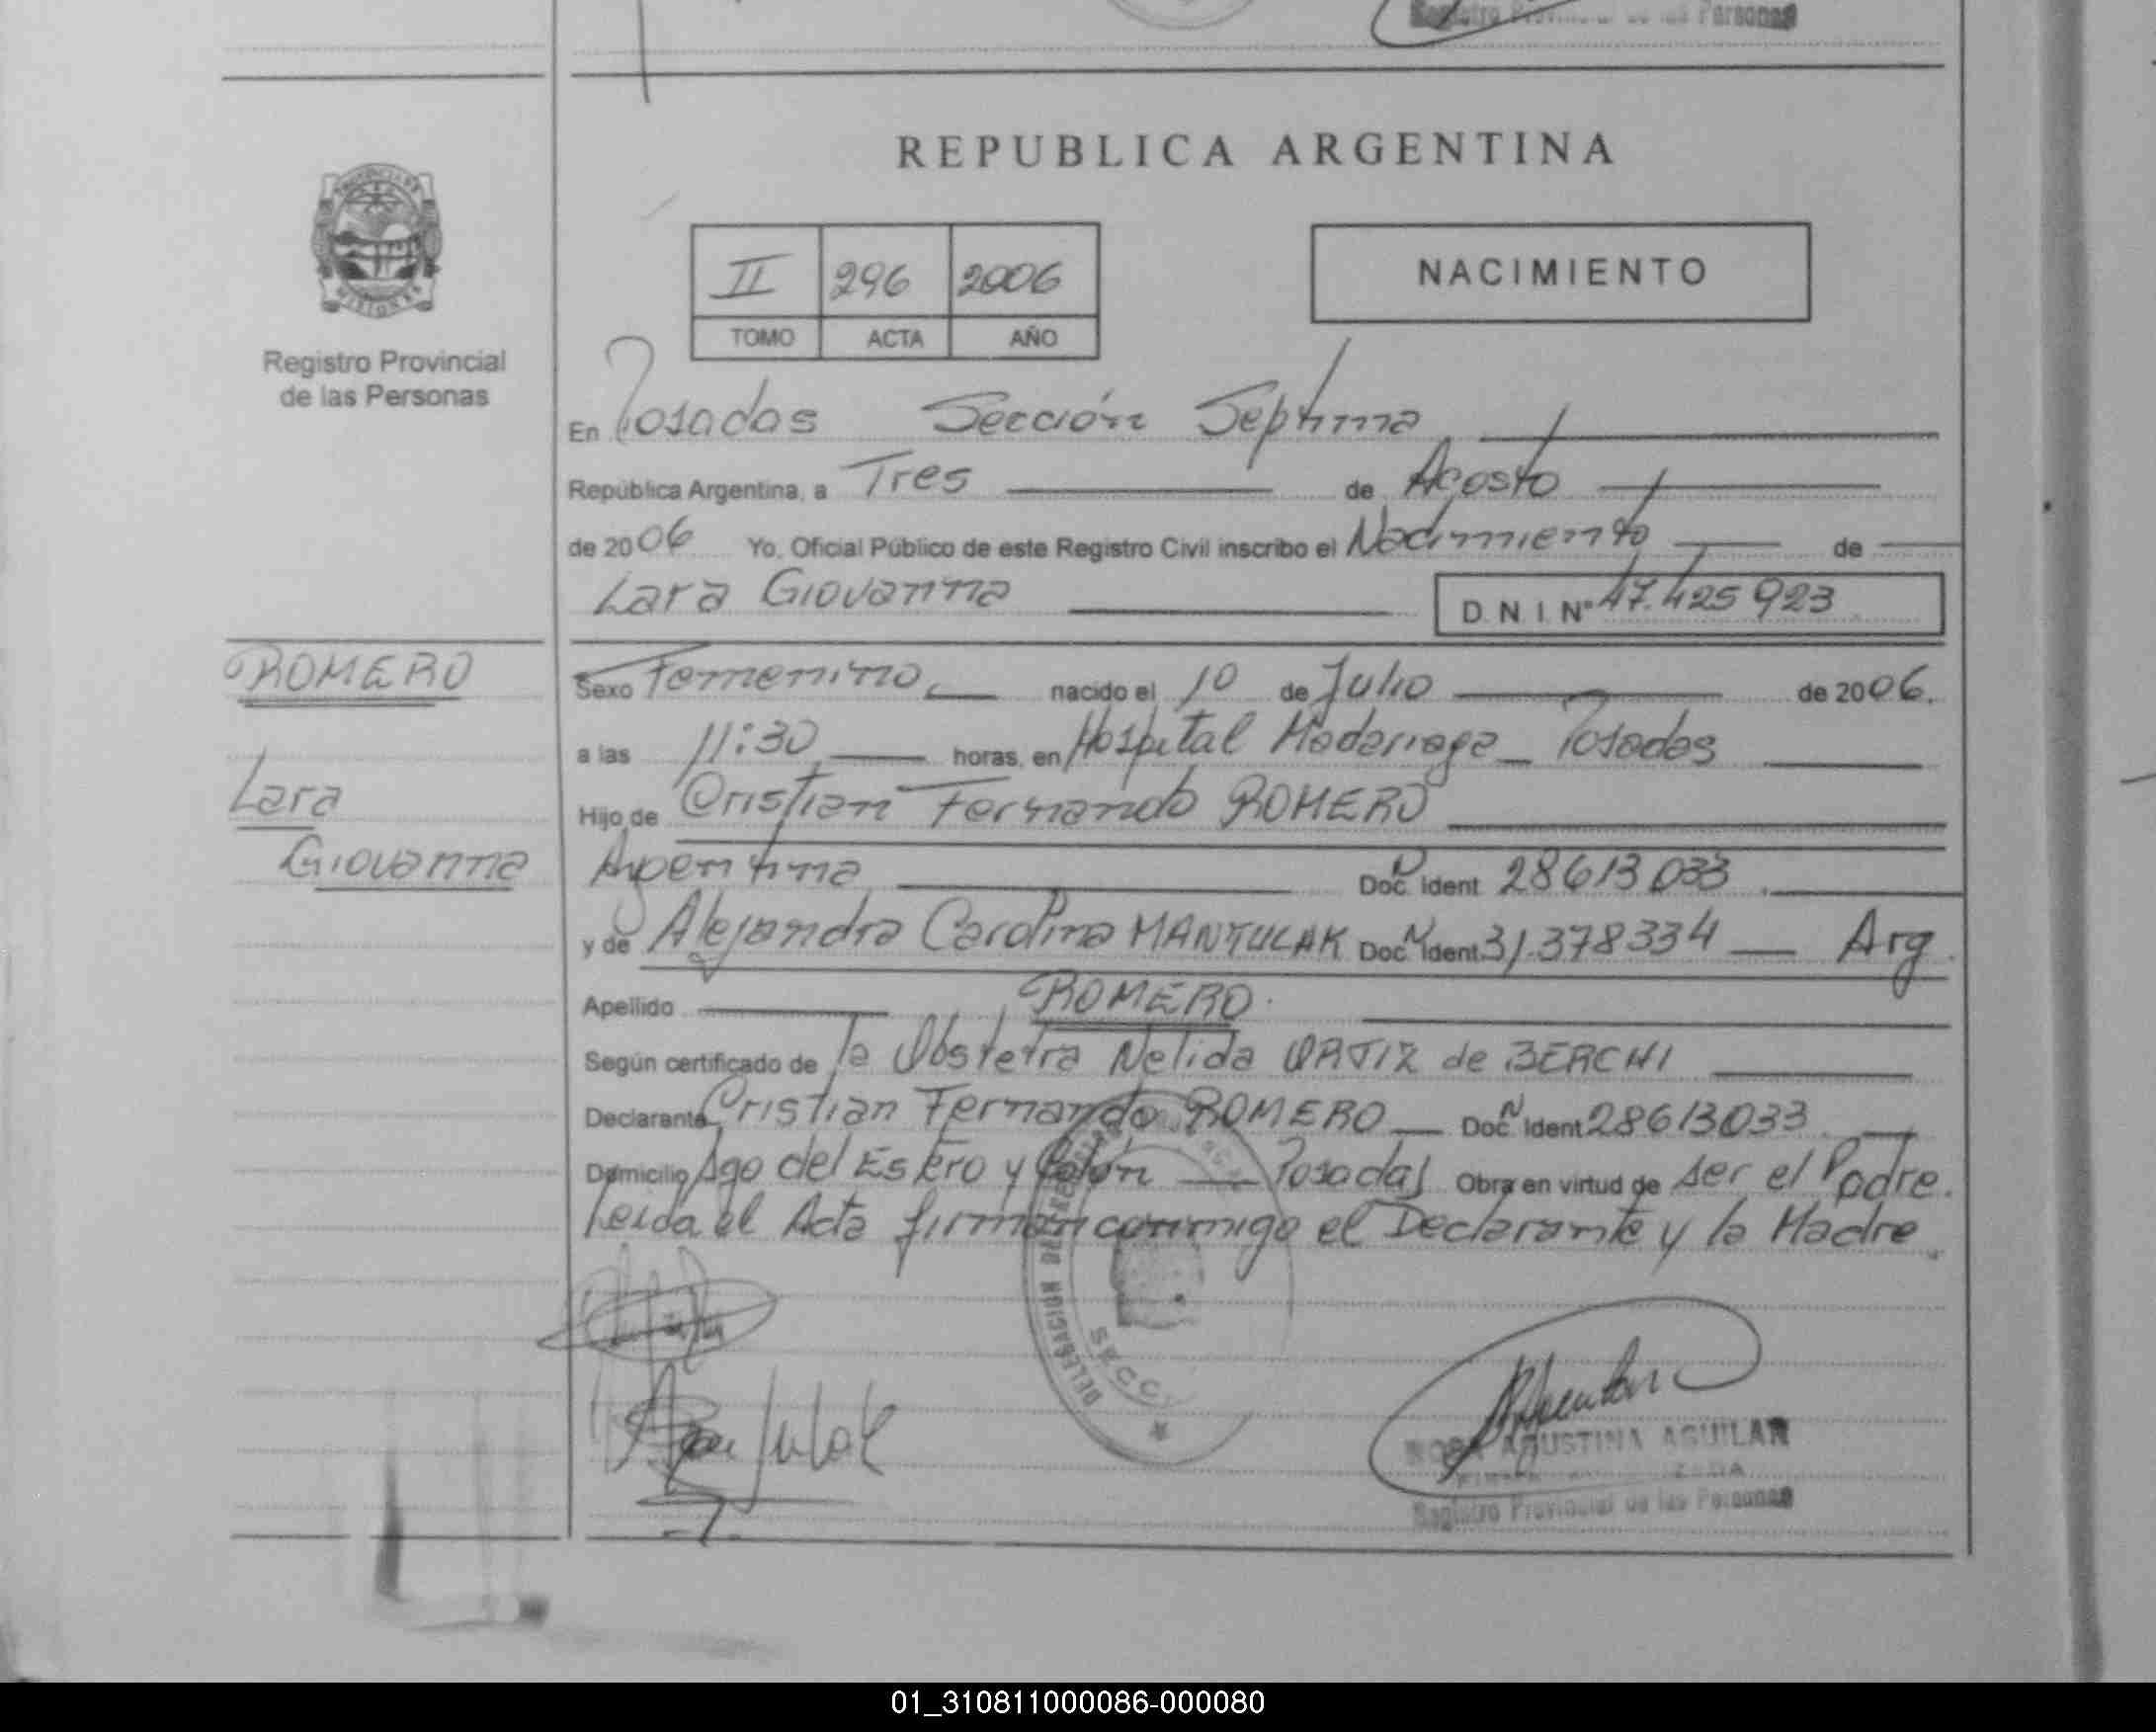 Registro Provincial de las Personas
REPUBLICA ARGENTINA
PROVINCIA DE
MISIONES
Registro Provincial
de las Personas
II 296 2006
TOMO ACTA AÑO
NACIMIENTO
En Posadas Sección Septima
República Argentina, a Tres de Agosto
de 2006 Yo, Oficial Público de este Registro Civil inscribo el Nacimiento de
Lara Giovanna D.N.I. Nº 47.425 923
ROMERO
Lara
Giovanna
Sexo Femenino nacido el 10 de Julio de 2006.
a las 11:30 horas, en Hospital Madariaga Posadas
Hijo de Cristian Fernando ROMERO
Argentina Doc. N Ident 28613033
y de Alejandra Carolina MANTULAK Doc. N Ident. 31.378334 Arg.
Apellido ROMERO.
Según certificado de la Obstetra Nelida ORTIZ de BERCHI
Declarante Cristian Fernando ROMERO Doc. N Ident 28613033
Domicilio Sgo del Estero y Colón Posadas Obra en virtud de ser el Padre.
Leida el Acta firman conmigo el Declarante y la Madre.
DELEGACION
SECC
ROSA AGUSTINA AGUILAR
Registro Provincial de las Personas
01_310811000086-000080